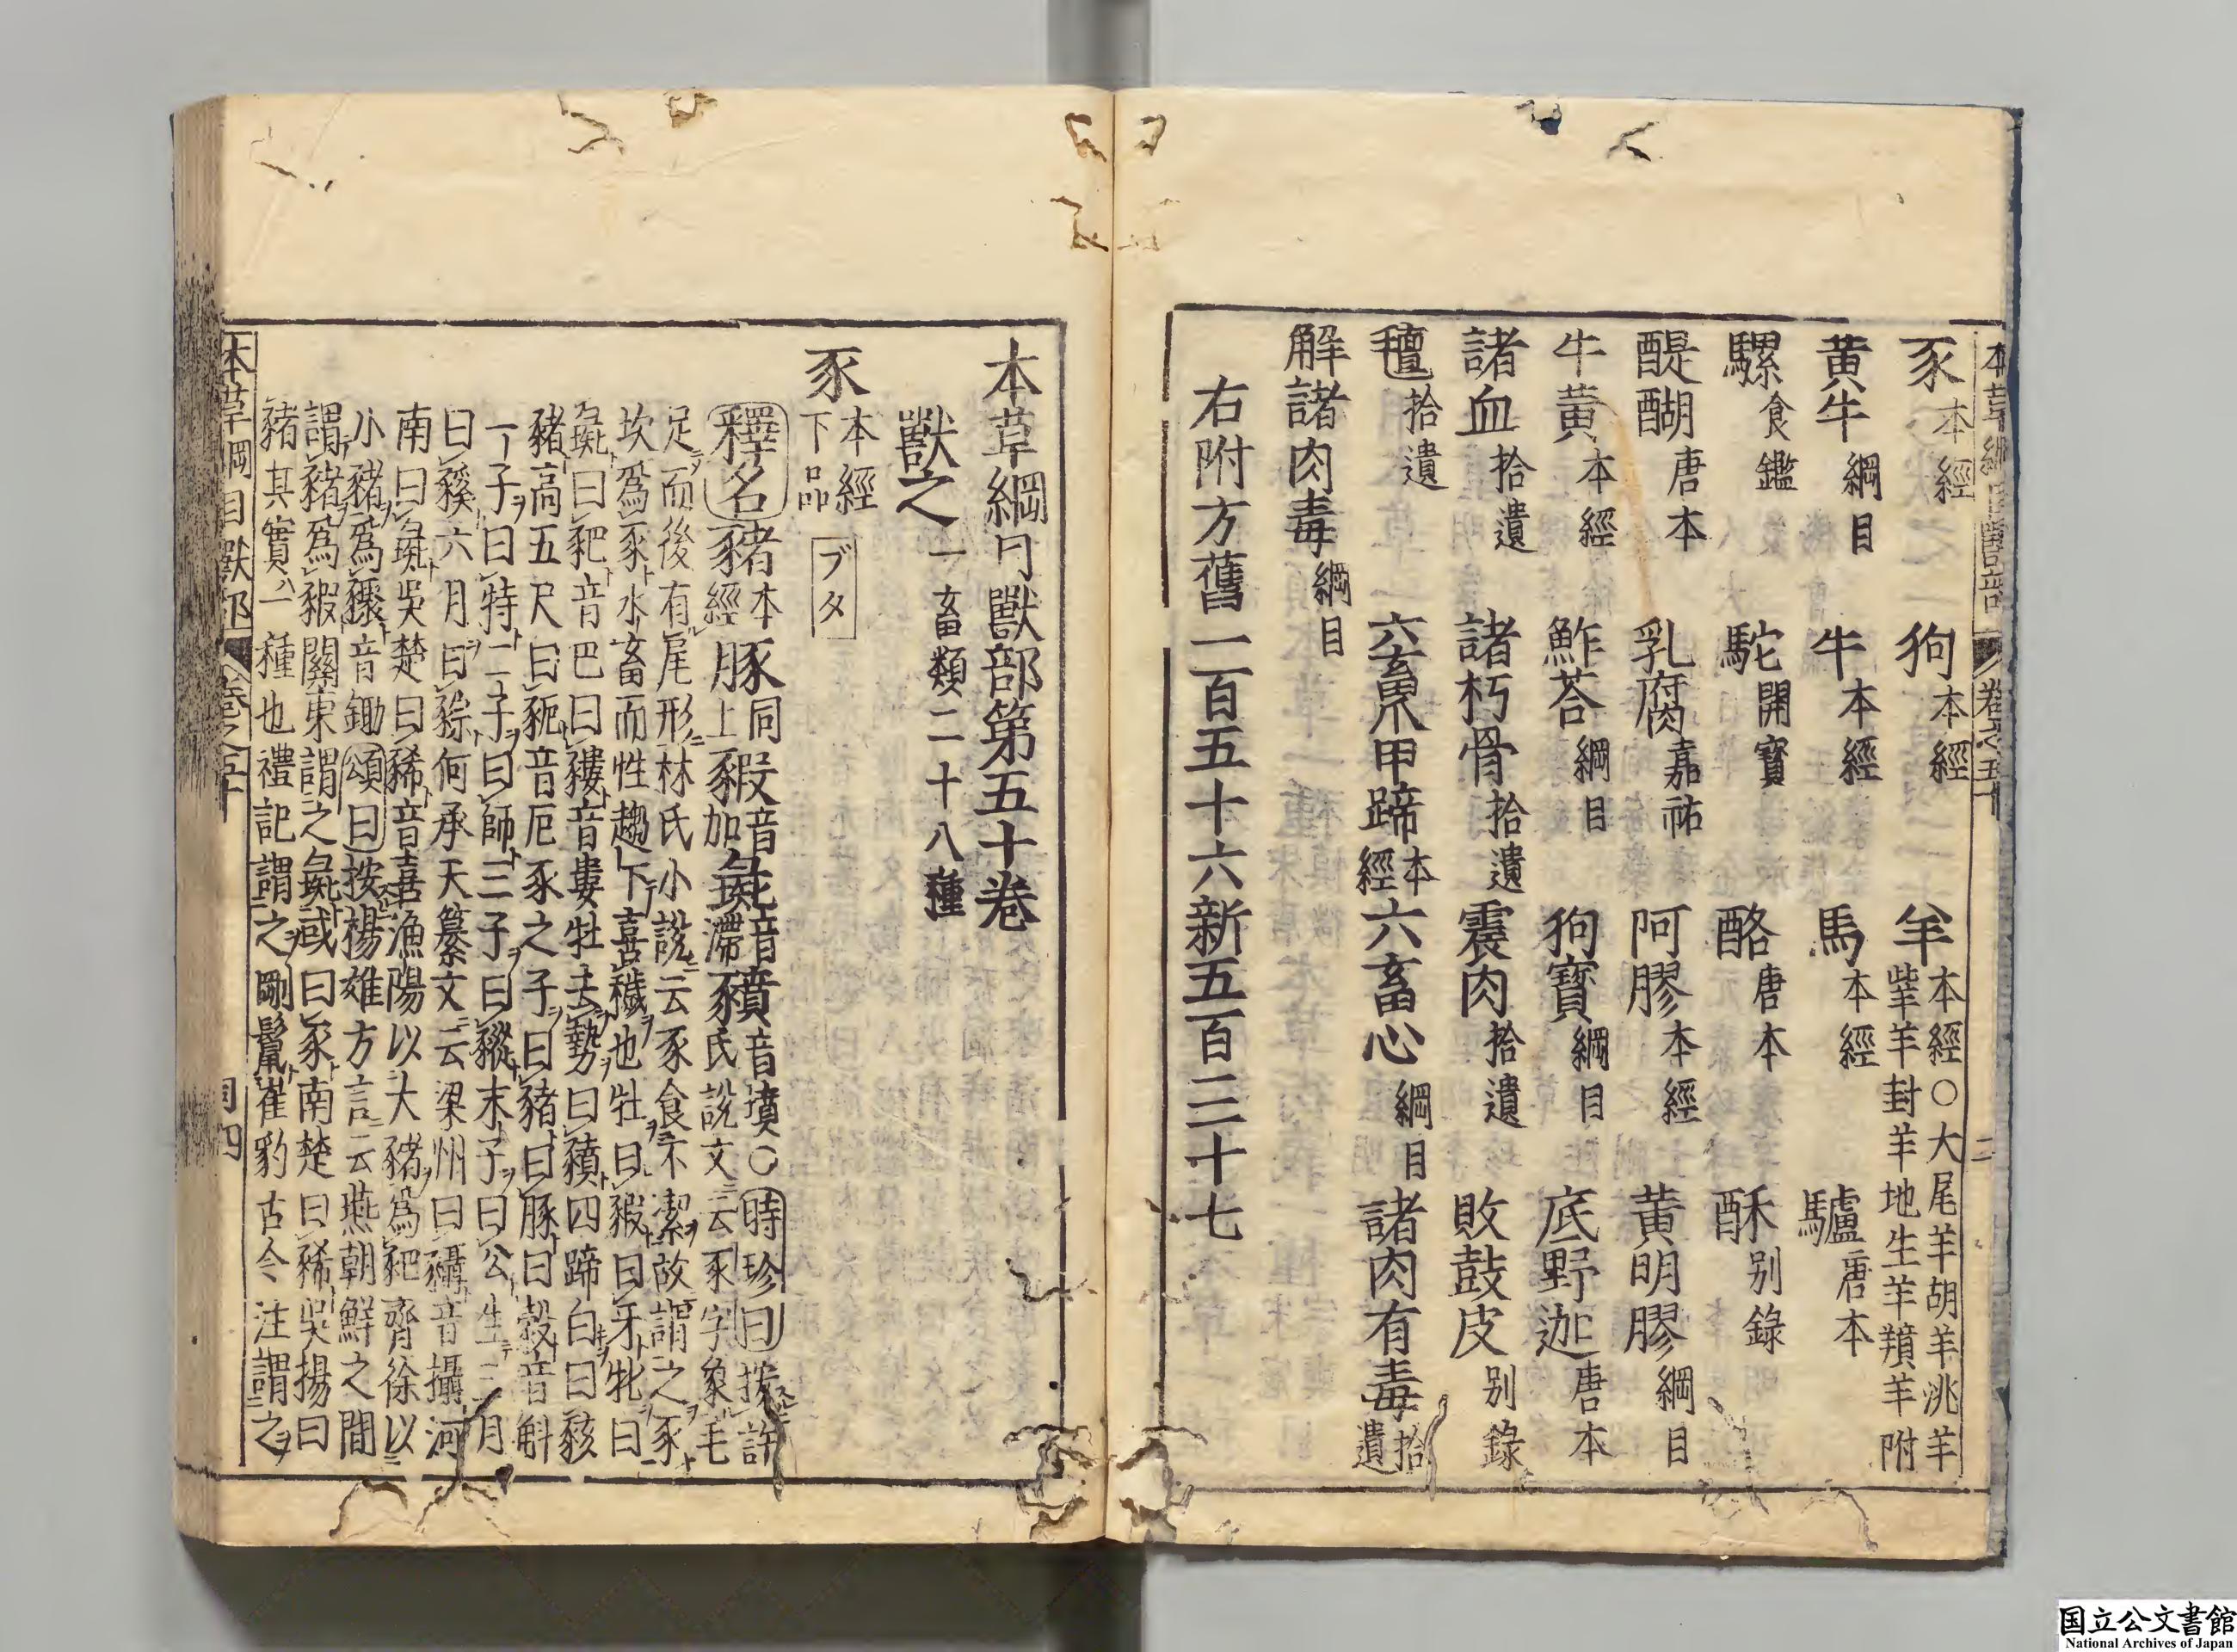 豕本經 狗本經 羊本經○大尾羊胡羊洮羊𦍕羊封羊地生羊羵羊附
黃牛綱目 牛本經 馬本經 驢唐本
騾食鑑 駝開寶 酪唐本 酥別錄
醍醐唐本 乳腐嘉祐 阿膠本經 黃明膠綱目
牛黃本經 鮓荅綱目 狗寶綱目 底野迦唐本
諸血拾遺 諸朽骨拾遺 震肉拾遺 敗鼓皮別錄
氊拾遺 六畜毛蹄甲本經 六畜心綱目 諸肉有毒拾遺
解諸肉毒綱目
右附方舊一百五十六新五百三十七
本草綱目獸部第五十卷
獸之一畜類二十八種
豕本經下品 ブタ
釋名豬本經豚同上豭音加彘音滯豶音墳○時珍曰按許氏說文云豕字象毛
足而後有尾形林氏小說云豕食不潔故謂之豕
坎爲豕水畜而性趨下喜穢也牡曰豭曰牙牝曰
彘曰豝音巴曰䝏音婁牡去勢曰豶四蹄白曰豥
豬高五尺曰䝈音厄豕之子曰豬曰豚曰豰音斛
一子曰特二子曰師三子曰豵末子曰公生三月
曰豯六月曰豵何承天纂文云梁州曰䝕音攝河
南曰彘吳楚曰豨音喜漁陽以大豬爲豝齊徐以
小豬爲䝒音鋤頌曰按楊雄方言云燕朝鮮之間
謂豬爲豭關東謂之彘或曰豕南楚曰豨吳揚曰
豬其實一種也禮記謂之剛鬣崔豹古今注謂之
本草綱目獸部 卷之五十 同 四